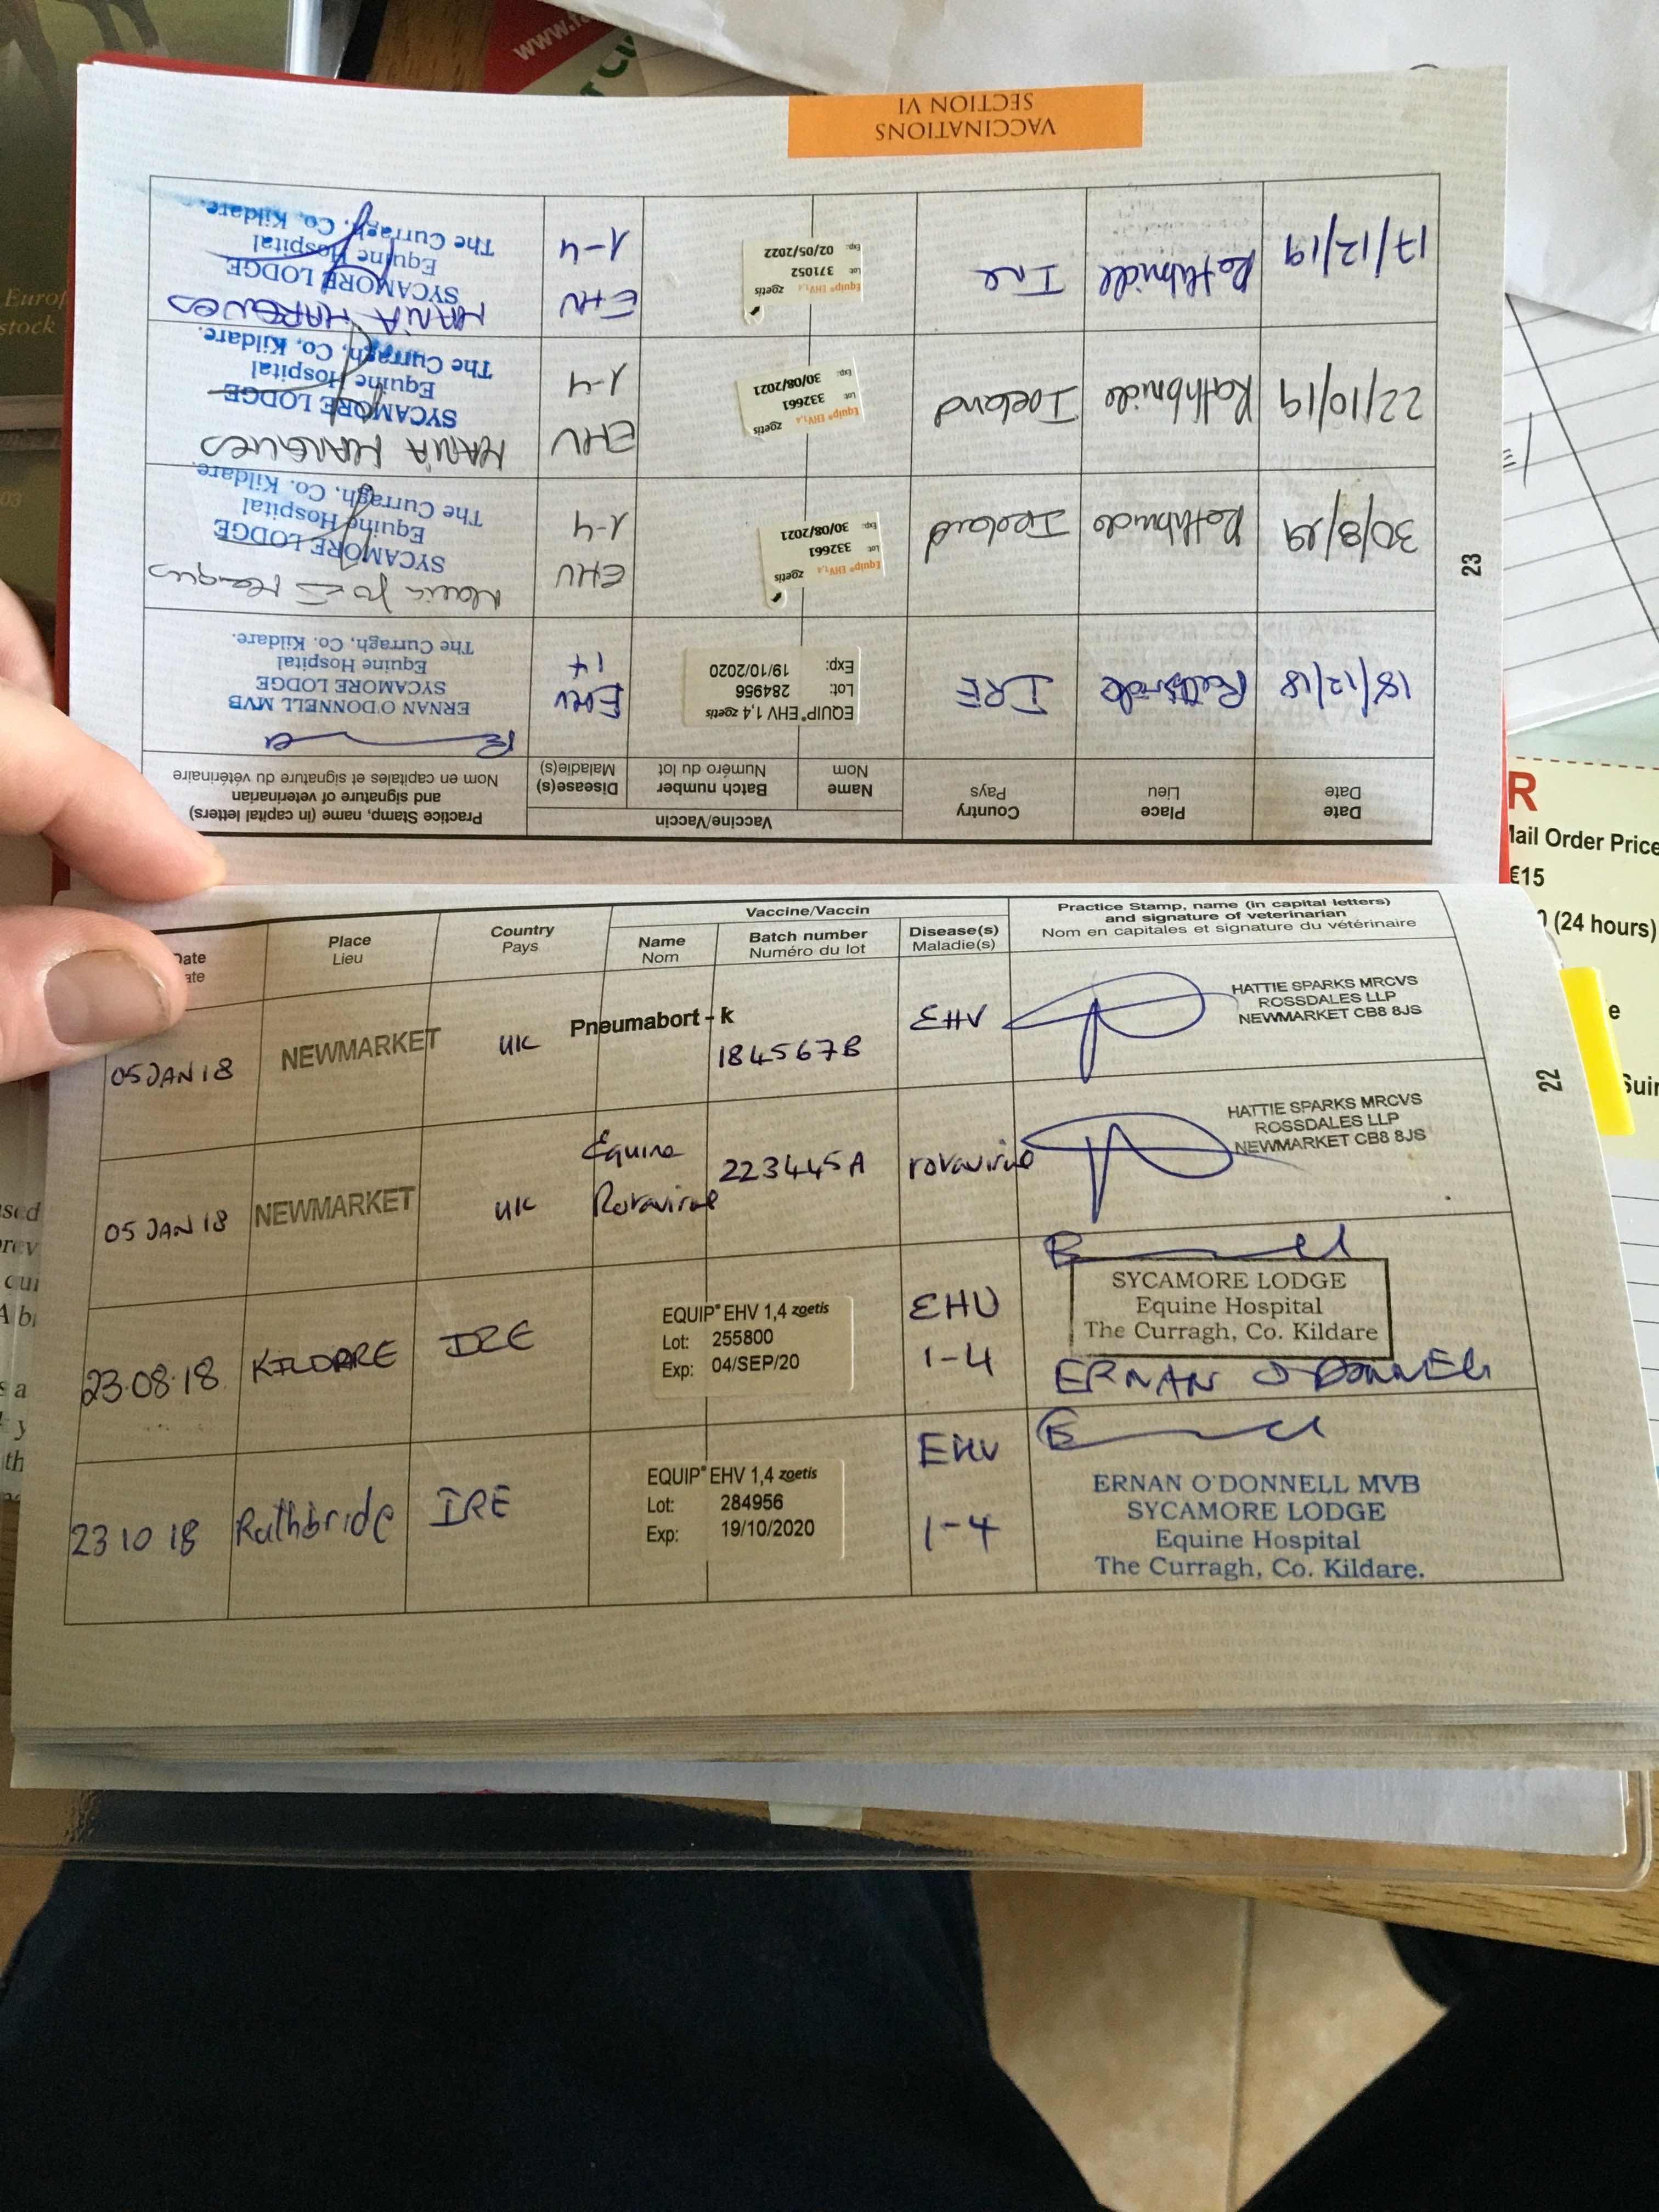 www.
Europ
stock
03
VACCINATIONS
SECTION VI
23
Date
Date
Place
Lieu
Country
Pays
Vaccine/Vaccin
Name
Nom
Batch number
Numéro du lot
Disease(s)
Maladie(s)
Practice Stamp, name (in capital letters)
and signature of veterinarian
Nom en capitales et signature du vétérinaire
18/12/18
IRE
EQUIP® EHV 1,4 zoetis
Lot: 284956
Exp: 19/10/2020
EHV
14
ERNAN O'DONNELL MVB
SYCAMORE LODGE
Equine Hospital
The Curragh, Co. Kildare.
30/8/19
Rathbride
Ireland
Equip® EHV1,4 zoetis
Lot: 332661
Exp: 30/08/2021
EHV
1-4
SYCAMORE LODGE
Equine Hospital
The Curragh, Co. Kildare.
22/10/19
Rathbride
Ireland
Equip® EHV1,4 zoetis
Lot: 332661
Exp: 30/08/2021
EHV
1-4
MARIA MARQUES
SYCAMORE LODGE
Equine Hospital
The Curragh, Co. Kildare.
17/12/19
Rathbride
Ire
Equip® EHV1,4 zoetis
Lot: 371052
Exp: 02/05/2022
EHV
1-4
MARIA MARQUES
SYCAMORE LODGE
Equine Hospital
The Curragh, Co. Kildare.
R
Mail Order Price
€15
(24 hours)
22
Date
ate
Place
Lieu
Country
Pays
Vaccine/Vaccin
Name
Nom
Batch number
Numéro du lot
Disease(s)
Maladie(s)
Practice Stamp, name (in capital letters)
and signature of veterinarian
Nom en capitales et signature du vétérinaire
05 JAN 18
NEWMARKET
UK
Pneumabort - k
184567B
EHV
HATTIE SPARKS MRCVS
ROSSDALES LLP
NEWMARKET CB8 8JS
05 JAN 18
NEWMARKET
UK
Equine
Rotavirus
223445A
rotavirus
HATTIE SPARKS MRCVS
ROSSDALES LLP
NEWMARKET CB8 8JS
23.08.18
KILDARE
IRE
EQUIP® EHV 1,4 zoetis
Lot: 255800
Exp: 04/SEP/20
EHV
1-4
SYCAMORE LODGE
Equine Hospital
The Curragh, Co. Kildare
ERNAN O'DONNELL
23 10 18
Rathbride
IRE
EQUIP® EHV 1,4 zoetis
Lot: 284956
Exp: 19/10/2020
EHV
1-4
ERNAN O'DONNELL MVB
SYCAMORE LODGE
Equine Hospital
The Curragh, Co. Kildare.